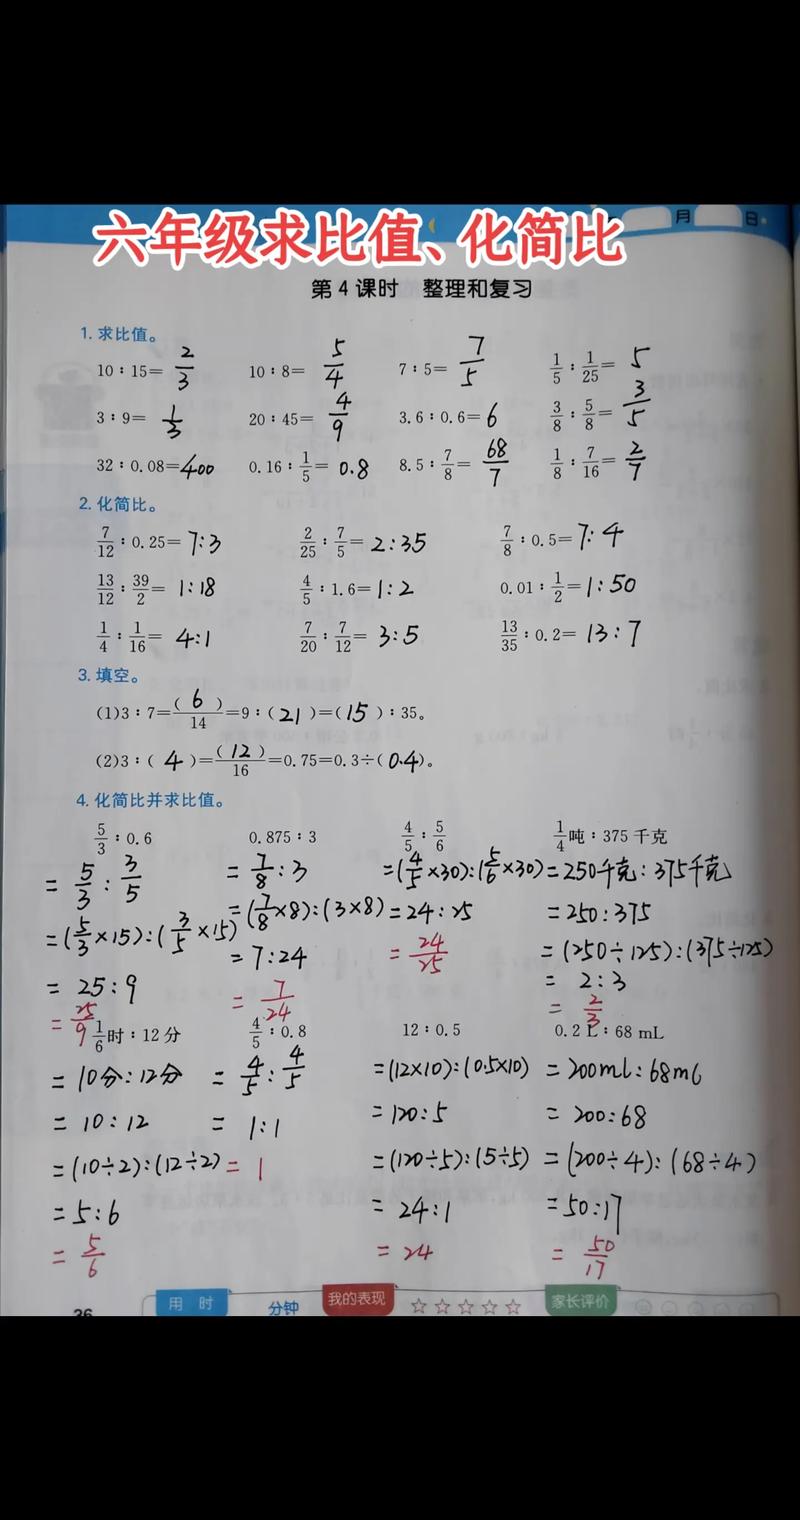 月 日
六年级求比值、化简比
第4课时 整理和复习
1. 求比值。
10∶15= 2/3 10∶8= 5/4 7∶5= 7/5 1/5∶1/25= 5
3∶9= 1/3 20∶45= 4/9 3.6∶0.6= 6 3/8∶5/8= 3/5
32∶0.08= 400 0.16∶1/5= 0.8 8.5∶7/8= 68/7 1/8∶7/16= 2/7
2. 化简比。
7/12∶0.25= 7:3 2/25∶7/5= 2:35 7/8∶0.5= 7:4
13/12∶39/2= 1:18 4/5∶1.6= 1:2 0.01∶1/2= 1:50
1/4∶1/16= 4:1 7/20∶7/12= 3:5 13/35∶0.2= 13:7
3. 填空。
(1)3∶7=( 6 )/14=9∶( 21 )=( 15 )∶35。
(2)3∶( 4 )=( 12 )/16=0.75=0.3÷( 0.4 )。
4. 化简比并求比值。
5/3∶0.6 0.875∶3 4/5∶5/6 1/4吨∶375千克
= 5/3 : 3/5 = 7/8 : 3 =(4/5×30):(5/6×30) =250千克:375千克
=(5/3×15):(3/5×15) =(7/8×8):(3×8) =24:25 =250:375
= 25:9 = 7:24 = 24/25 =(250÷125):(375÷125)
= 25/9 = 7/24 = 2:3
= 2/3
1/6时∶12分 4/5∶0.8 12∶0.5 0.2 L∶68 mL
= 10分:12分 = 4/5 : 4/5 =(12×10):(0.5×10) = 200ml:68ml
= 10:12 = 1:1 =120:5 = 200:68
=(10÷2):(12÷2) = 1 =(120÷5):(5÷5) =(200÷4):(68÷4)
=5:6 = 24:1 =50:17
= 5/6 = 24 = 50/17
36 用时 分钟 我的表现 ☆☆☆☆☆ 家长评价